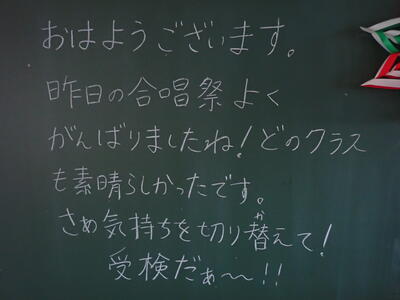 おはようございます。
昨日の合唱祭よく
がんばりましたね！どのクラス
も素晴らしかったです。
さぁ気持ちを切り替えて！
か
受検だぁ〜！！